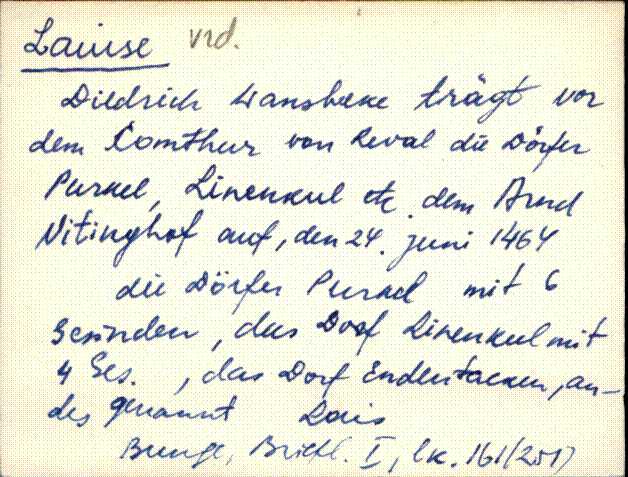 Lauise vrd.
Diedrich Wansbeke trägt vor
dem Comthur von Reval die Dörfer
Purkel, Linenkul etc. dem Arnd
Vitinghof auf, den 24. juni 1464
die Dörfer Purkel mit 6
Gesinden, das Dorf Linenkul mit
4 Ges., das Dorf Endentacken, an-
des genannt Lais
Bunge, Briefl. I, lk. 161 (251)